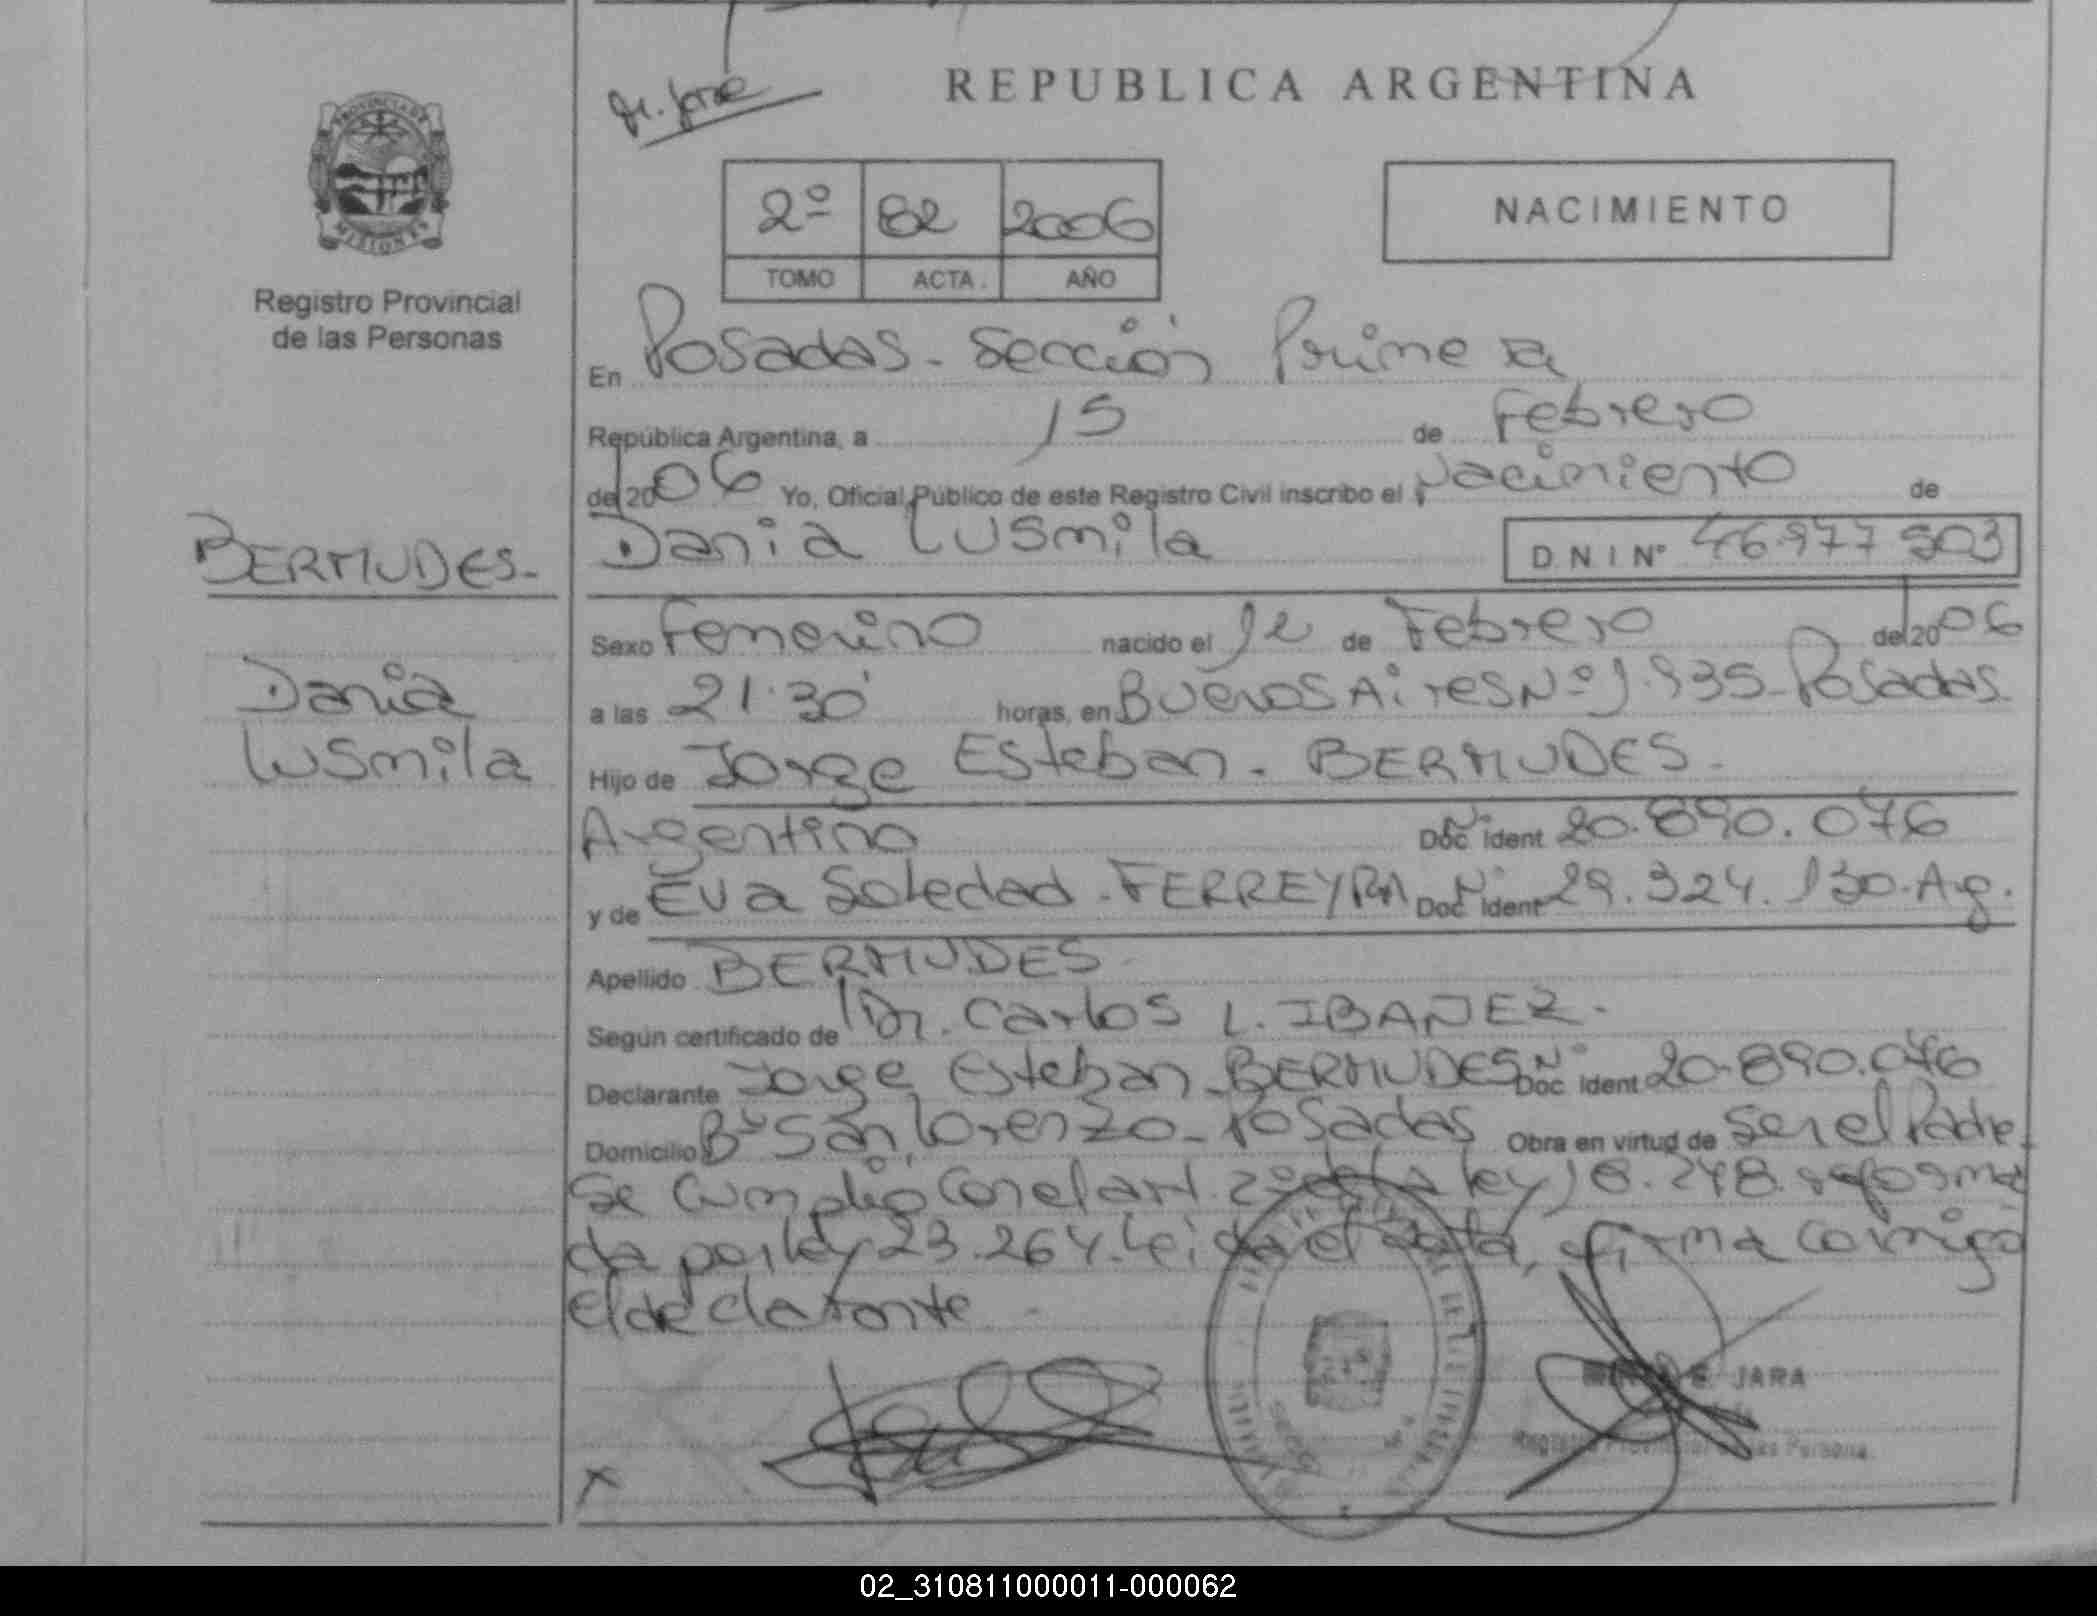 REPUBLICA ARGENTINA
PROVINCIA DE
MISIONES
Registro Provincial
de las Personas
2º 82 2006
TOMO ACTA. AÑO
NACIMIENTO
En Posadas - Sección Primera
República Argentina, a 15 de Febrero
de 2006 Yo, Oficial Público de este Registro Civil inscribo el Nacimiento de
BERMUDES.
Dania Lusmila
D N I Nº 46.977 503
Sexo Femenino nacido el 12 de Febrero de 2006
Dania
Lusmila
a las 21.30 horas, en Buenos Aires Nº 1.935 - Posadas.
Hijo de Jorge Esteban - BERMUDES.
Argentino Doc Nº Ident 20.890.076
y de Eva Soledad - FERREYRA Doc Nº Ident 29.324.130. Arg.
Apellido BERMUDES.
Según certificado de Dr. Carlos L. IBAÑEZ.
Declarante Jorge Esteban - BERMUDES Doc Nº Ident 20.890.076
Domicilio Bº San Lorenzo - Posadas Obra en virtud de Ser el Padre
Se Cumplio Con el art. 2º de la ley 18.248 reforma
da por ley 23.264. Leida el acta, firma Conmigo
el declarante
E. JARA
Registro Provincial de las Persona
X
02_310811000011-000062